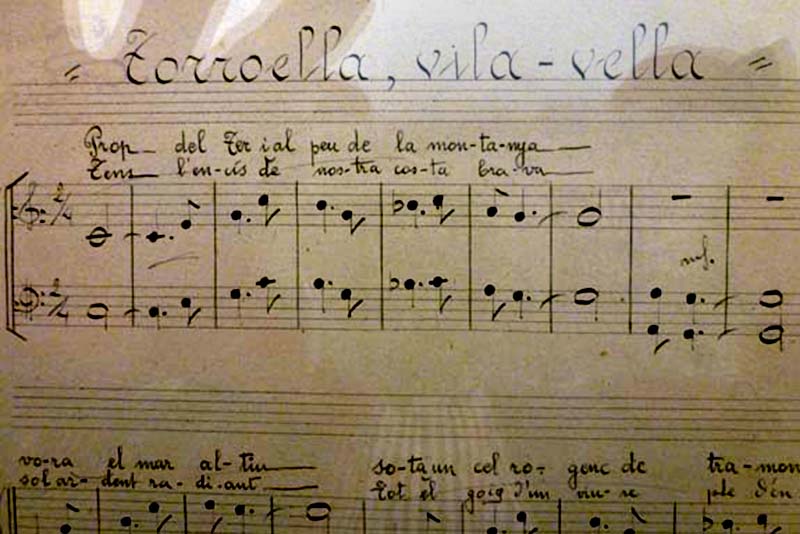 = Torroella, vila-vella =
Prop del Ter i al peu de la mon-ta-nya
Tens l'en-cís de nos-tra cos-ta bra-va
2/4
mf.
2/4
vo-ra el mar al-tiu so-ta un cel ro- genc de tra-mon
sol ar-dent ra-di-ant Tot el goig d'un viu-re ple d'en